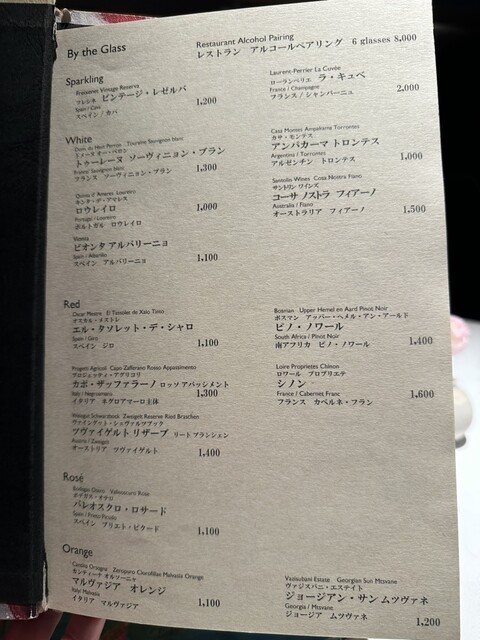 By the Glass
Restaurant Alcohol Pairing
レストラン アルコールペアリング 6 glasses 8,000
Sparkling
Freixenet Vintage Reserva
フレシネ ビンテージ・レゼルバ
Spain / Cava
スペイン / カバ
1,200
Laurent-Perrier La Cuvée
ローランペリエ ラ・キュベ
France / Champagne
フランス / シャンパーニュ
2,000
White
Touraine Sauvignon blanc
トゥーレーヌ ソーヴィニョン・ブラン
France/ Sauvignon blanc
フランス ソーヴィニョン・ブラン
1,300
Loureiro
ロウレイロ
Portugal / Loureiro
ポルトガル ロウレイロ
1,000
Vionta
ビオンタ アルバリーニョ
Spain / Albariño
スペイン アルバリーニョ
1,100
Casa Montes Ampakama Torrontes
カサ・モンテス
アンパカーマ トロンテス
Argentina / Torrontes
アルゼンチン トロンテス
1,000
Santolin Wines Cosa Nostra Fiano
サントリン ワインズ
コーサ ノストラ フィアーノ
Australia / Fiano
オーストラリア フィアーノ
1,500
Red
Oscar Mestre El Tassolet de Xalo Tinto
オスカル・メストレ
エル・タソレット・デ・シャロ
Spain / Giro
スペイン ジロ
1,100
Progetti Agricoli Capo Zafferano Rosso Appassimento
プロジェッティ・アグリコリ
カポ・ザッファラーノ ロッソ アパッシメント
Italy / Negroamaro
イタリア ネグロアマーロ主体
1,300
Weingut Schwarzbock Zweigelt Reserve Ried Braschen
ヴァイングット・シュヴァルツブック
ツヴァイゲルト リザーブ リート ブランシェン
Austria / Zweigelt
オーストリア ツヴァイゲルト
1,400
Bosman Upper Hemel en Aard Pinot Noir
ボスマン アッパー・ヘメル・アン・アールド
ピノ・ノワール
South Africa / Pinot Noir
南アフリカ ピノ・ノワール
1,400
Loire Proprietes Chinon
ロワール プロプリエテ
シノン
France / Cabernet Franc
フランス カベルネ・フラン
1,600
Rosé
パレオスクロ・ロサード
Spain / Prieto Picudo
スペイン プリエト・ピクード
1,100
Orange
Cantina Orsogna Zeropuro Clorofillae Malvasia Orange
カンティーナ オルソーニャ
マルヴァジア オレンジ
Italy/ Malvasia
イタリア マルヴァジア
1,100
Vazisubani Estate Georgian Sun Mtsvane
ヴァジスバニ・エステイト
ジョージアン・サン ムツヴァネ
Georgia / Mtsvane
ジョージア ムツヴァネ
1,200